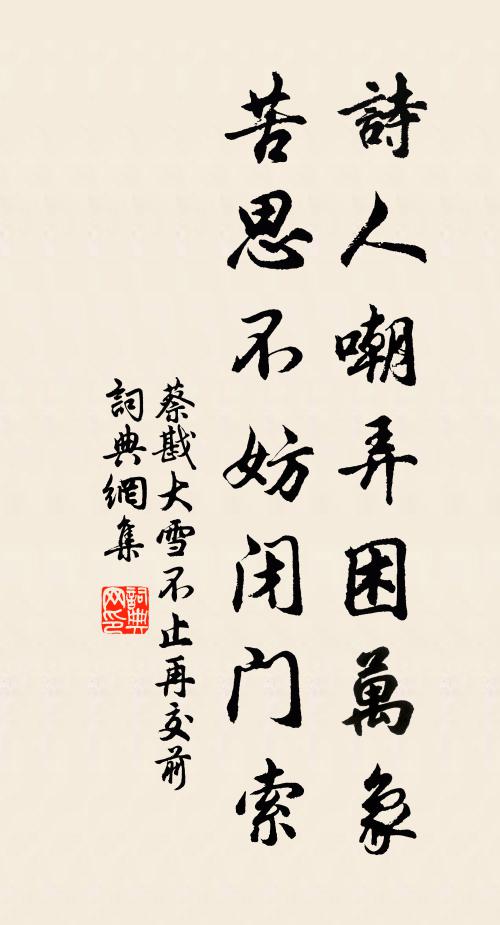 詩人嘲弄困萬象
苦思不妨闭门索
蔡戡大雪不止再交前
詞典網集
詞典网印